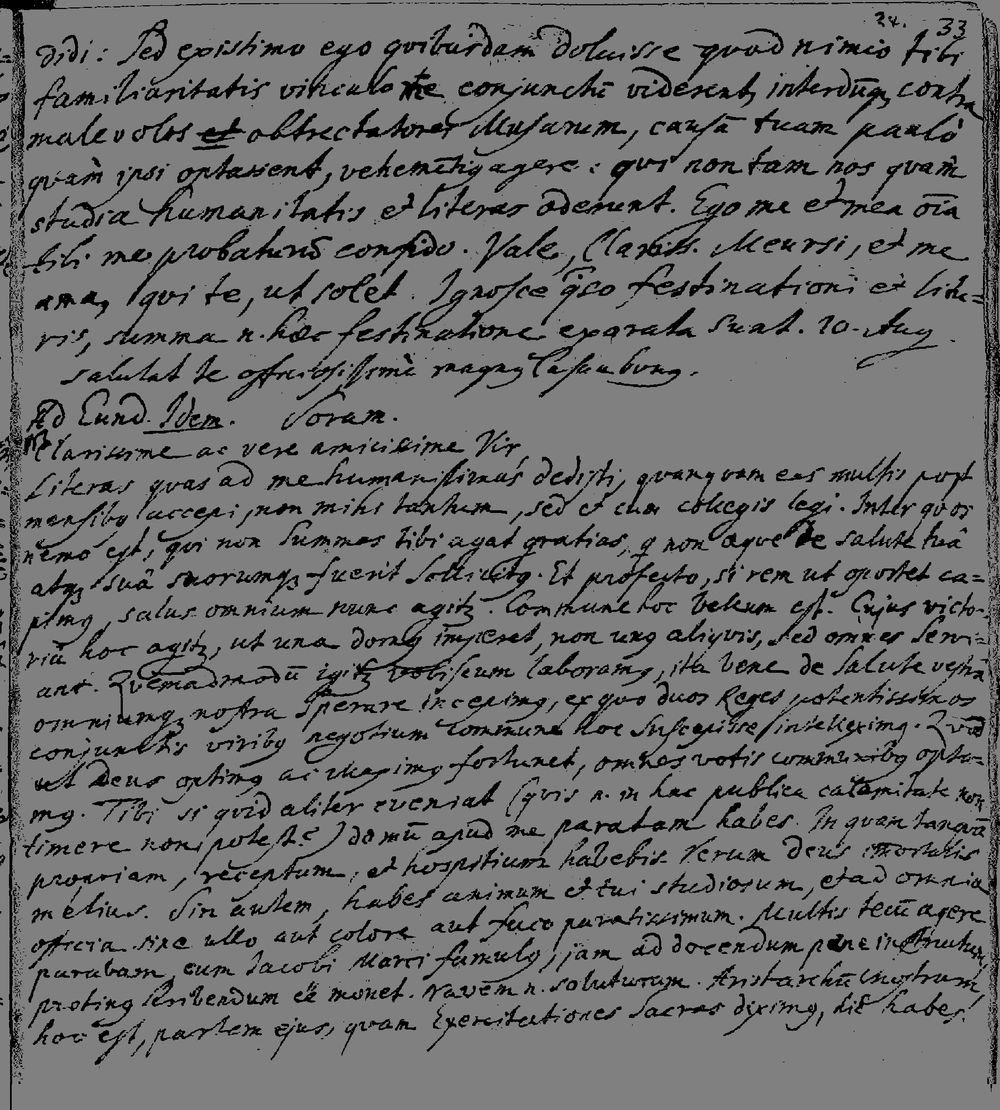 24. 33
didi: Sed existimo ego quibusdam doluisse quod nimio tibi
familiaritatis vinculo me conjunctū viderent, interdūq, contra
malevolos et obtrectatores Musarum, causā tuam paulò
quàm ipsi optassent, vehemētiq agere: qui non tam nos quam
studia humanitatis et literas oderunt. Ego me et mea oīa
tibi me probaturū confido. Vale, Clariss. Meursi, et me
ama, qui te, ut solet. Ignosce q̄so festinationi et litu=
ris, summa n. hæc festinatione exarata sunt. 10. Aug
salutat te officiosissimè magnq Casaubonq.
Ad Eund. Idem. Soram.
Clarissime ac vere amicissime Vir
Literas quas ad me humanissimas dedisti, quamquam eas multis post
mensibq accepi, non mihi tantum, sed et cum collegis legi. Inter quos
nemo est, qui non summas tibi agat gratias, q non aque de salute tuâ
atq suâ suorumq fuerit sollicitq. Et profecto, si rem ut oportet ca=
pimq, salus omnium nunc agitz. Commune hoc bellum est. Cujus victo-
riā hoc agitz, ut una domq imperet, non unq aliqvis, sed omnes servi=
ant. Quemadmodū igitz vobiscum laboramq, ita bene de salute vestrā
omniumq nostra sperare incepimq, ex quo duos Reges potentissimos
conjunctis viribq negotium commune hoc suscepisse intelleximq. Quod
ut Deus optimq ac maximq fortunet, omnes votis communibq opta=
mq. Tibi si quid aliter eveniat (quis n. in hac publica calamitate non
timere non potest?) domū apud me paratam habes. In quam tanquā
propriam, receptum, et hospitium habebis. Verum Deus immortalis
melius. Sin autem, habes animum et tui studiosum, et ad omnia
officia sine ullo aut colore aut fuco paratissimum. Multis tecū agere
parabam, cum Jacobi Marci famulq, jam ad docendum pane instructum,
protinq scribendum eē monet. Navem n. soluturam. Aristarchū nostrum,
hoc est, partem ejus, quam Exercitationes sacras diximq, hic habes.